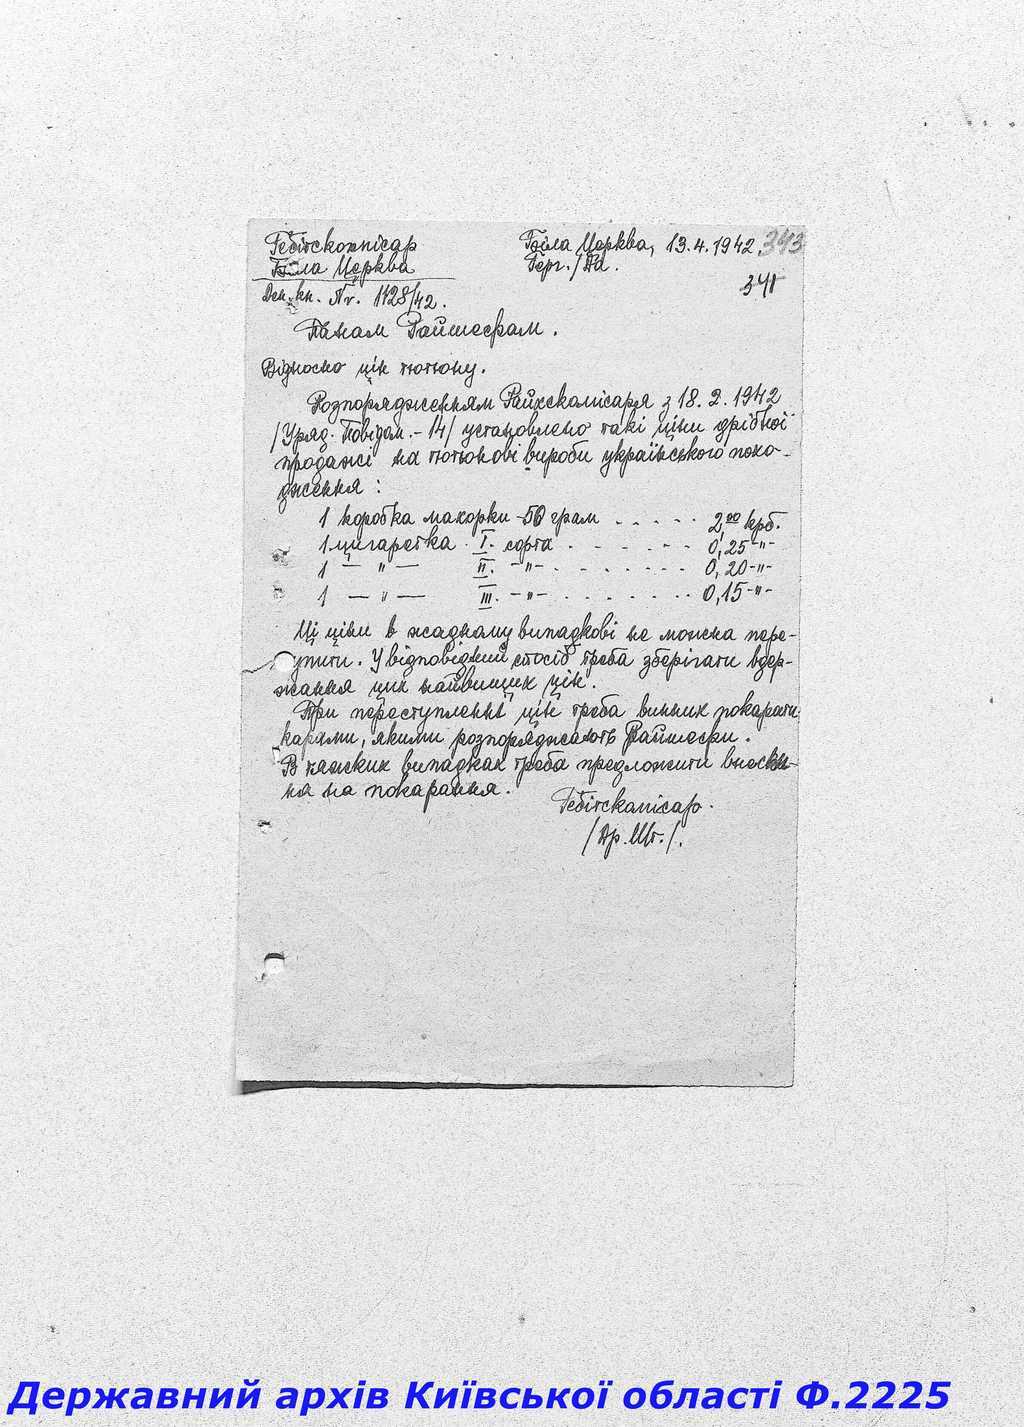 Гебітскомісар
Біла Церква
Ден. кн. Nr. 1128/42.
Біла Церква, 13.4.1942.
Герг./Па.
343
341
Панам Райшефам.
Відносно цін тютюну.
Розпорядженням Райхскомісаря з 18. 2. 1942
/Уряд. Повідом.- 14/ установлено такі ціни дрібної
продажі на тютюнові вироби українського похо-
дження :
1 коробка махорки -50 грам . . . . . 2,00 крб.
1 цигаретка I. сорта . . . . . . 0,25-"-
1 — " — II. -"- . . . . . . . . 0,20-"-
1 — " — III. -"- . . . . . . . . 0,15-"-
Ці ціни в жадному випадкові не можна пере-
ступити. У відповідний спосіб треба зберігати вдер-
жання цих найвищих цін.
При переступленні цін треба винних покарати
карами, якими розпоряджають Райшефи.
В тяжких випадках треба предложити внесен-
ня на покарання.
Гебітскомісар.
/Др. Шт./.
Державний архів Київської області Ф.2225